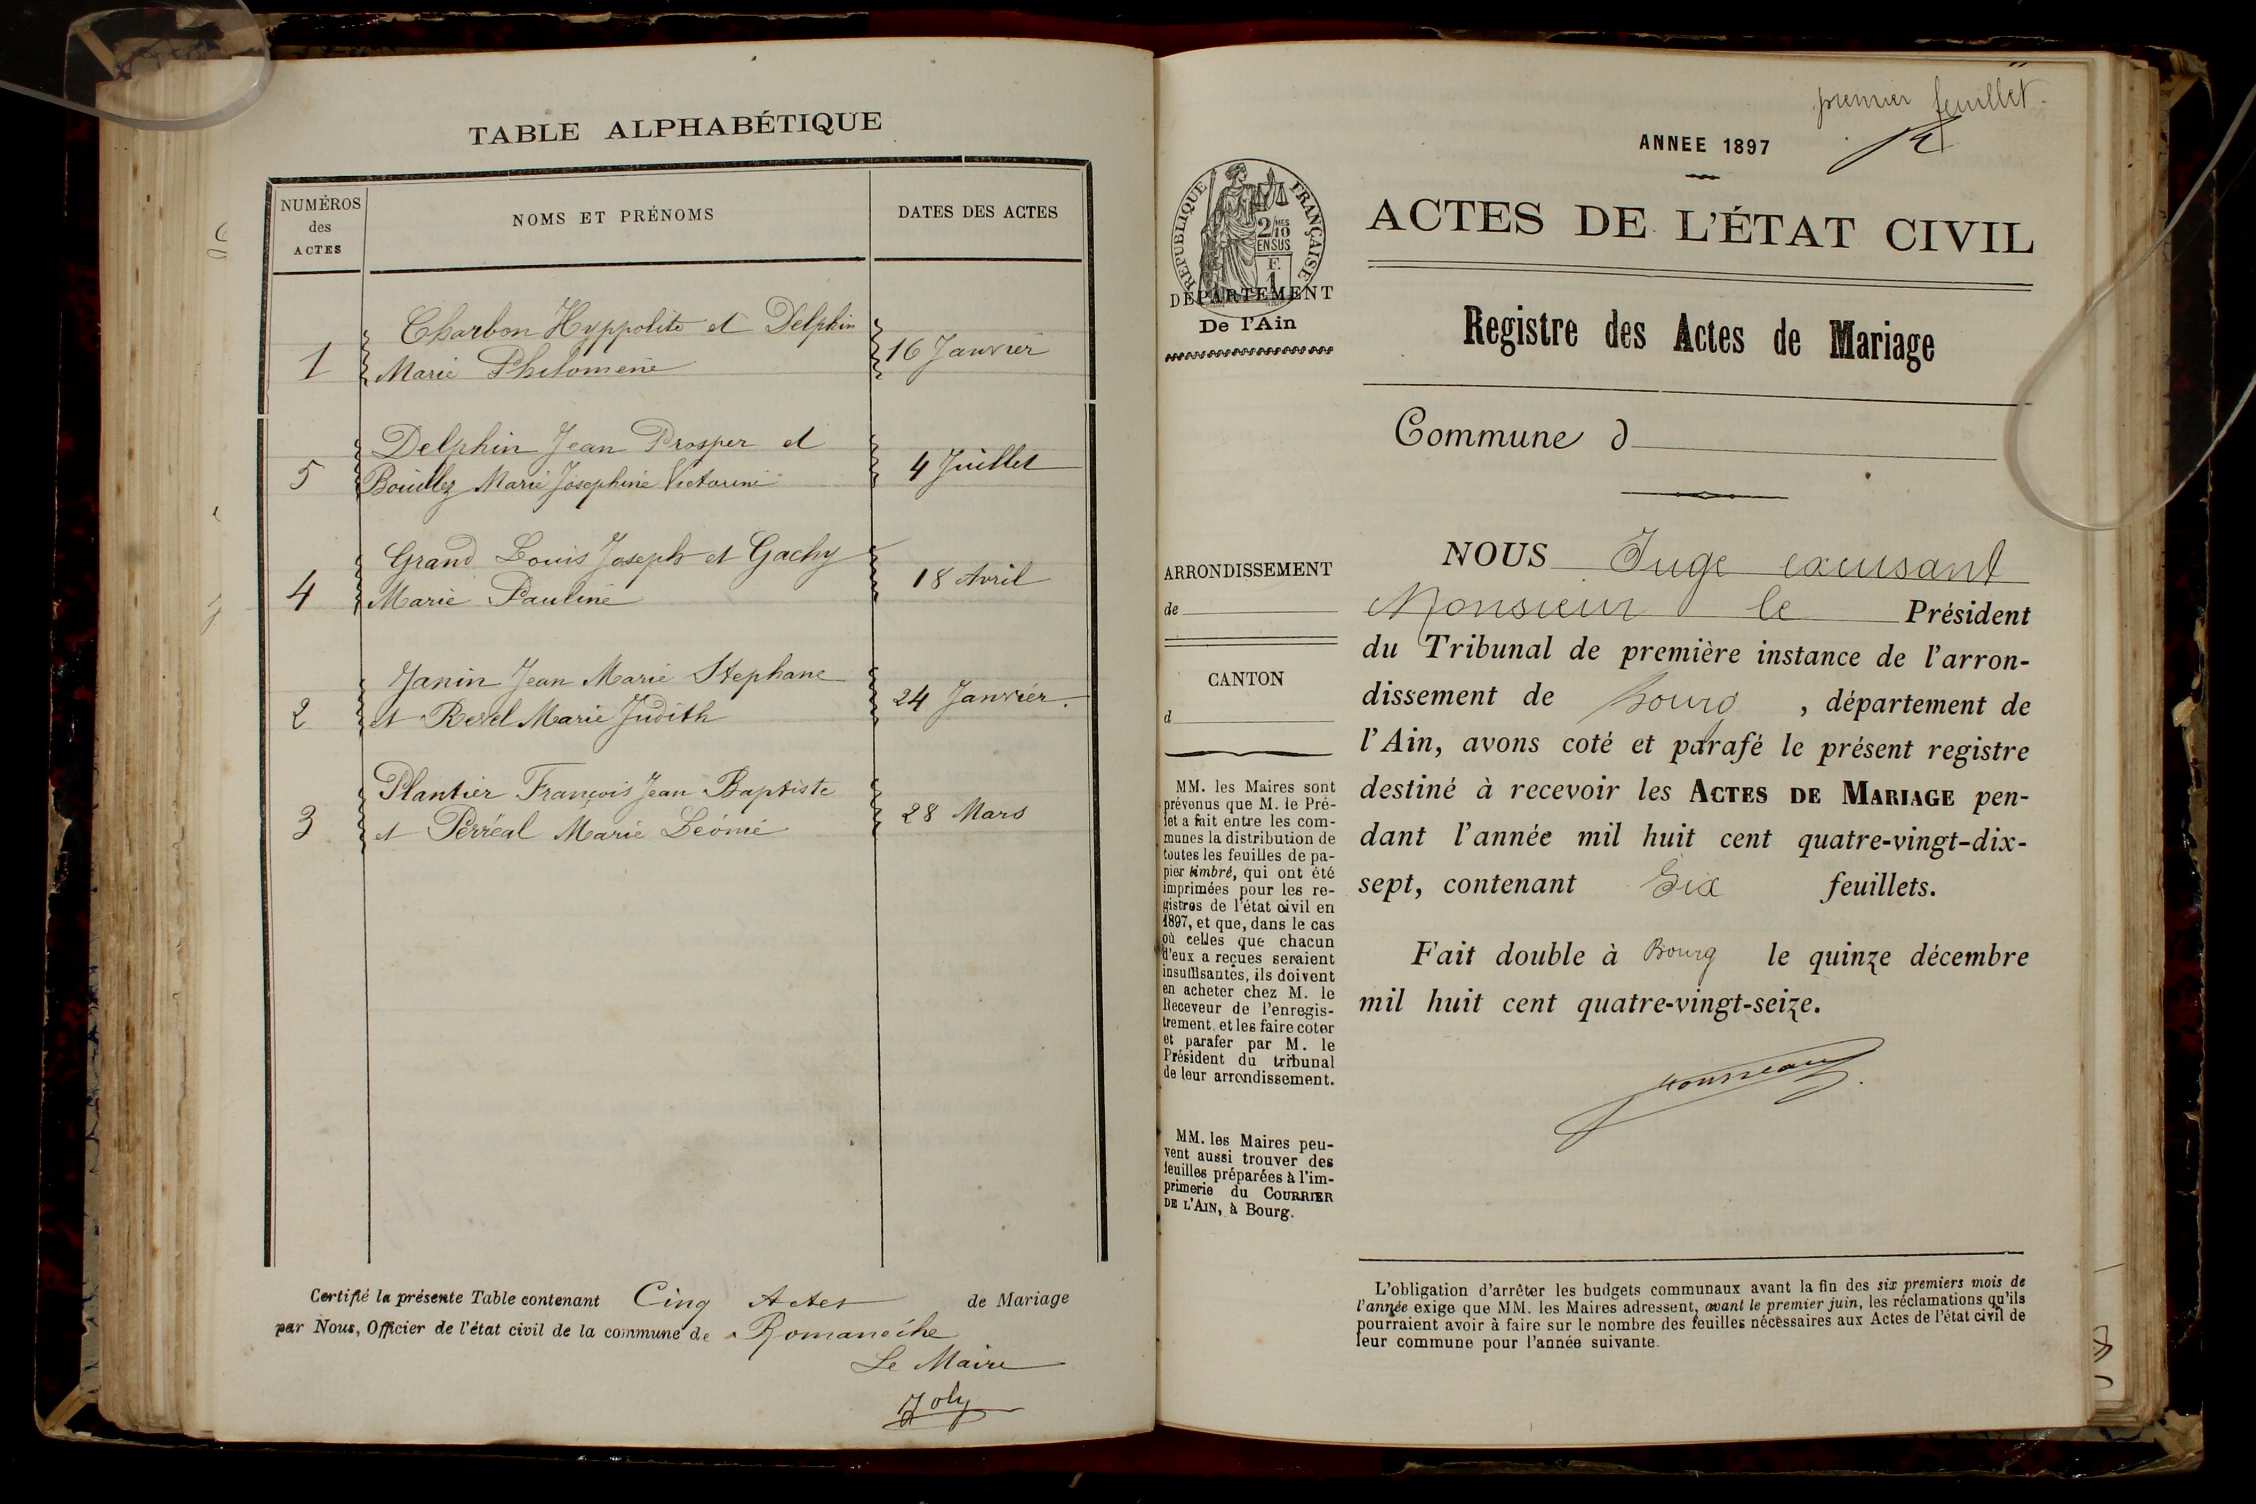 TABLE ALPHABÉTIQUE
NUMÉROS
des
ACTES
NOMS ET PRÉNOMS
DATES DES ACTES
Charbon Hyppolite et Delphin
1
Marie Philomène
16 Janvier
Delphin Jean Prosper et
5
Bouillez Marie Josephine Victorine
4 Juillet
Grand Louis Joseph et Gachy
4
Marie Pauline
18 Avril
Janin Jean Marie Stephane
2
et Revel Marie Judith
24 Janvier.
Plantier François Jean Baptiste
3
et Perréal Marie Léonie
28 Mars
Certifié la présente Table contenant Cinq Actes de Mariage
par Nous, Officier de l'état civil de la commune de Romanèche
Le Maire
Joly
premier feuillet
ANNEE 1897
RÉPUBLIQUE FRANÇAISE
2/MES
10
EN SUS
F.
1
DÉPARTEMENT
De l'Ain
ACTES DE L'ÉTAT CIVIL
Registre des Actes de Mariage
Commune d
ARRONDISSEMENT
de
CANTON
d
MM. les Maires sont
prévenus que M. le Pré-
fet a fait entre les com-
munes la distribution de
toutes les feuilles de pa-
pier timbré, qui ont été
imprimées pour les re-
gistres de l'état civil en
1897, et que, dans le cas
où celles que chacun
d'eux a reçues seraient
insuffisantes, ils doivent
en acheter chez M. le
Receveur de l'enregis-
trement, et les faire coter
et parafer par M. le
Président du tribunal
de leur arrondissement.
MM. les Maires peu-
vent aussi trouver des
feuilles préparées à l'im-
primerie du COURRIER
DE L'AIN, à Bourg.
NOUS Juge excusant
Monsieur le Président
du Tribunal de première instance de l'arron-
dissement de Bourg, département de
l'Ain, avons coté et parafé le présent registre
destiné à recevoir les ACTES DE MARIAGE pen-
dant l'année mil huit cent quatre-vingt-dix-
sept, contenant Six feuillets.
Fait double à Bourg le quinze décembre
mil huit cent quatre-vingt-seize.
L'obligation d'arrêter les budgets communaux avant la fin des six premiers mois de
l'année exige que MM. les Maires adressent, avant le premier juin, les réclamations qu'ils
pourraient avoir à faire sur le nombre des feuilles nécessaires aux Actes de l'état civil de
leur commune pour l'année suivante.